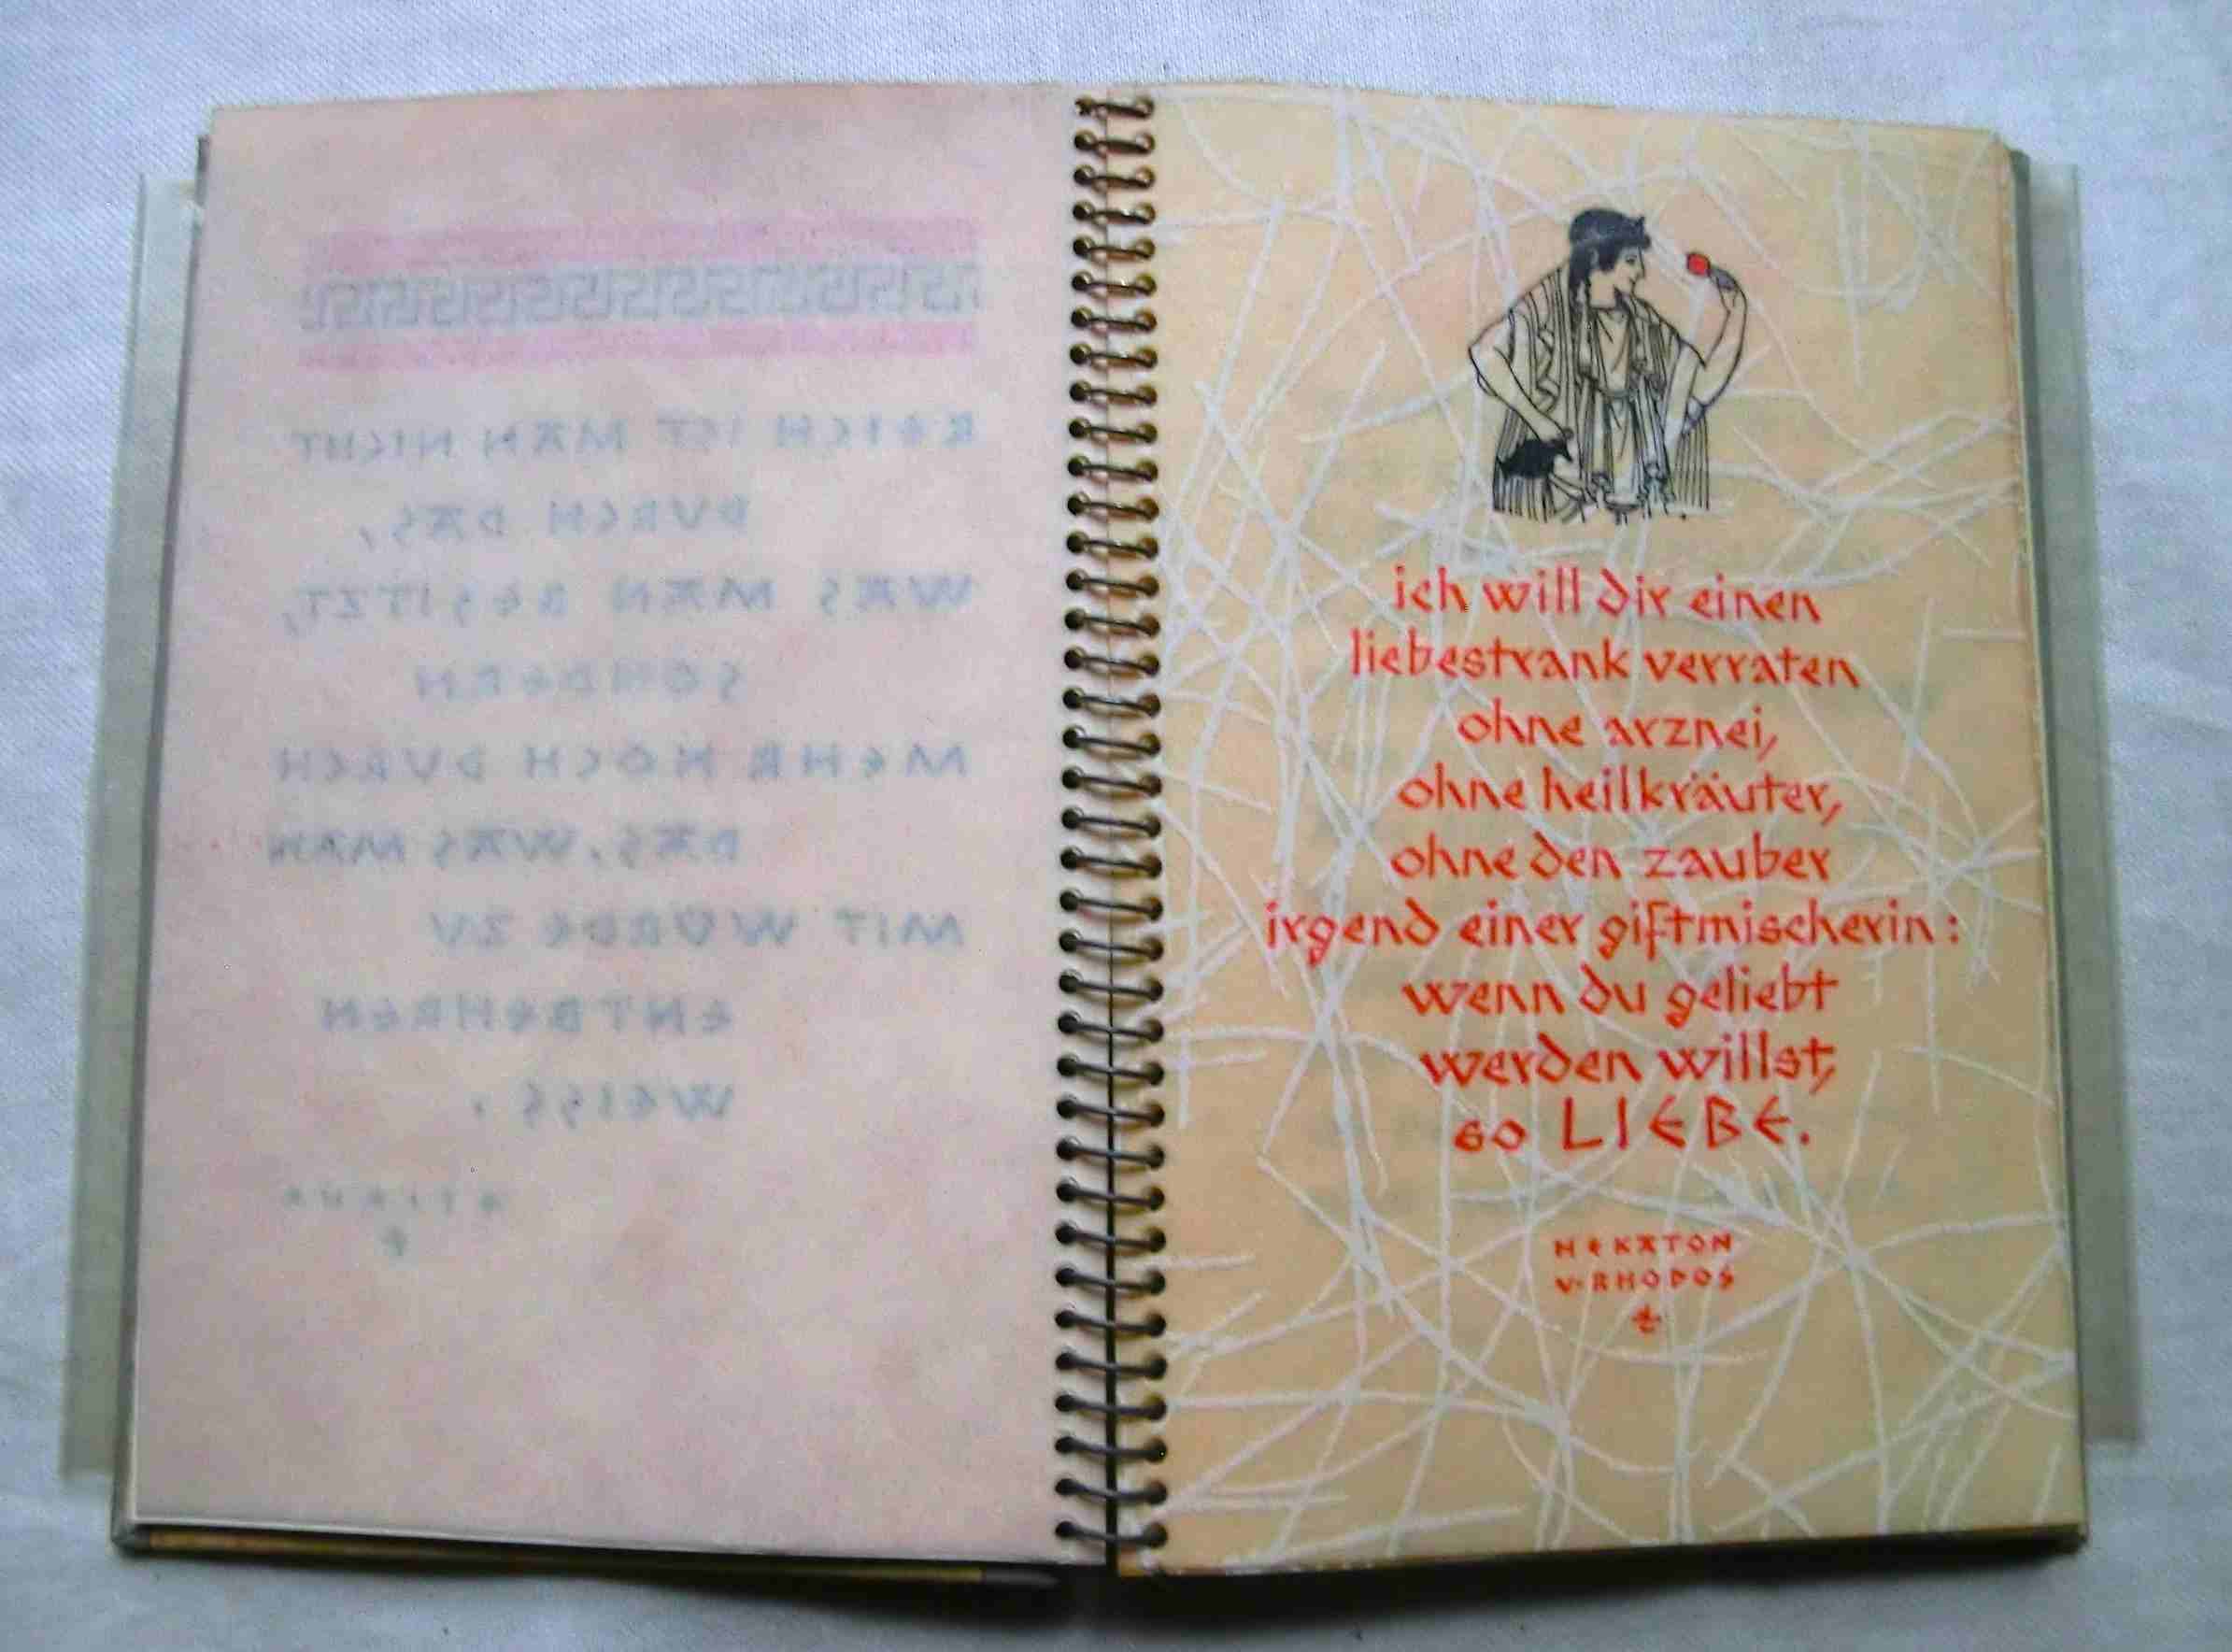 REICH IST MAN NICHT
DVRCH DAS,
WAS MAN BESITZT,
SONDERN
MEHR NOCH DVRCH
DAS, WAS MAN
MIT WÜRDE ZV
ENTBEHREN
WEISS.
ich will dir einen
liebestrank verraten
ohne arznei,
ohne heilkräuter,
ohne den zauber
irgend einer giftmischerin:
wenn du geliebt
werden willst,
so LIEBE.
HEKATON
V·RHODOS